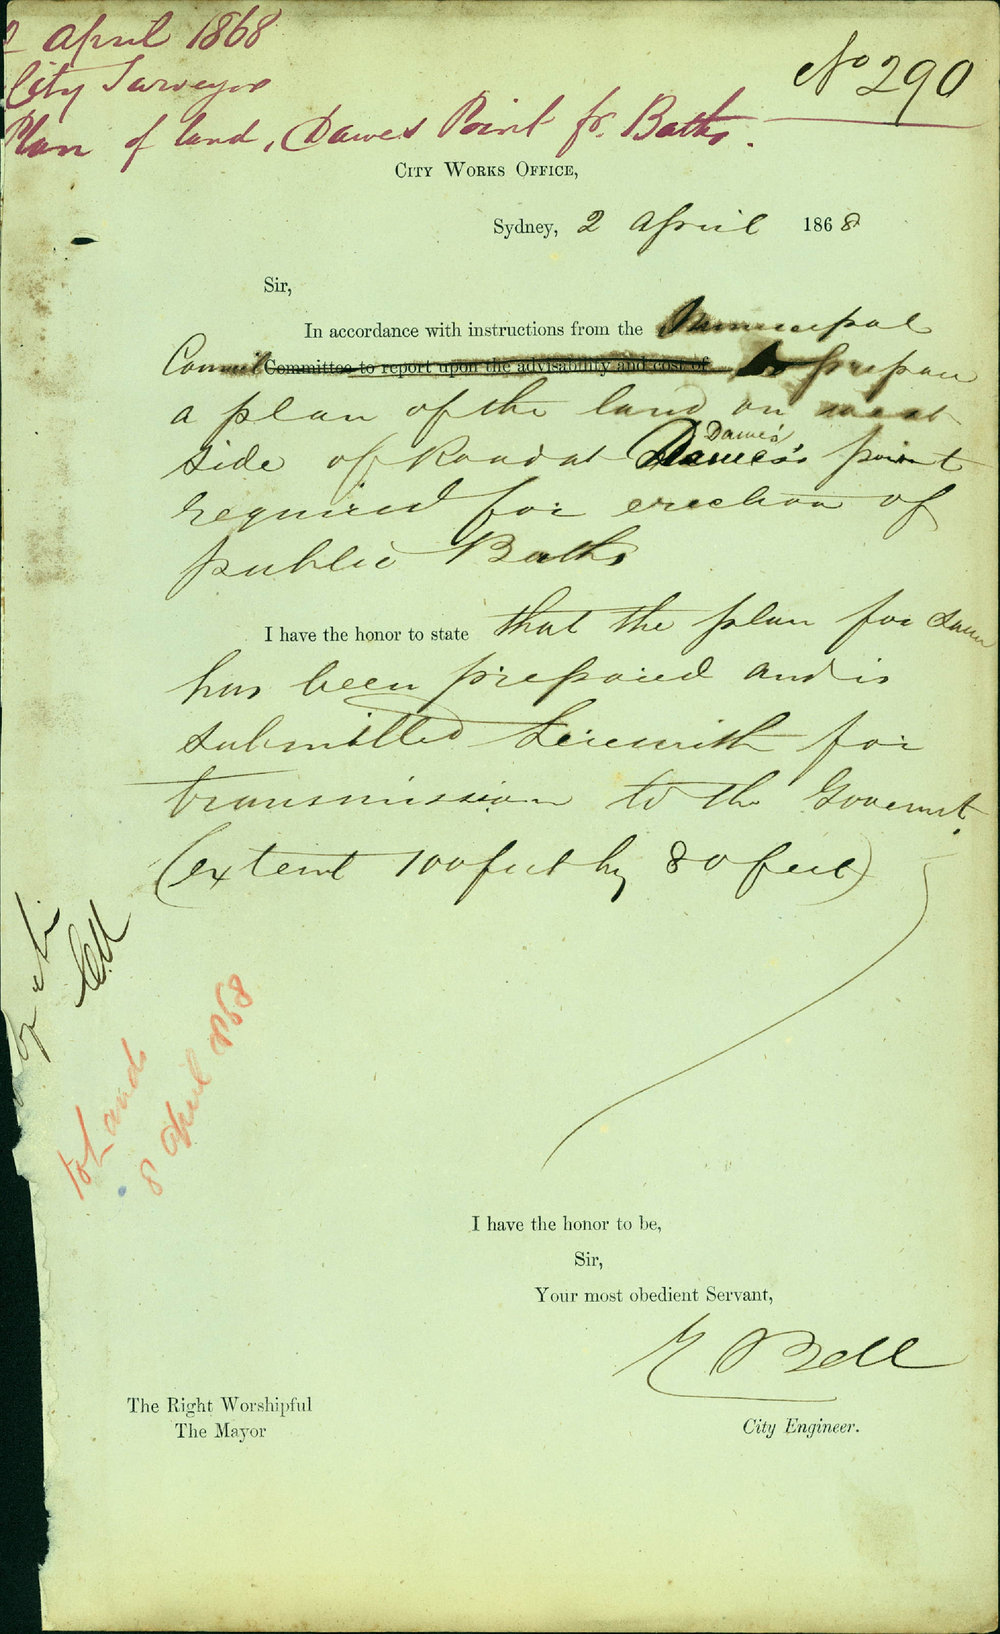 2 April 1868
City Surveyor
Plan of land, Dawes Point fr. Baths.
No 290
CITY WORKS OFFICE,
Sydney, 2 April 1868
Sir,
In accordance with instructions from the Municipal
Council Committee to report upon the advisability and cost of to prepare
a plan of the land on west
Dawes's
side of Road at Dawes's point
required for erection of
public Baths
I have the honor to state that the plan for same
has been prepared and is
submitted herewith for
transmission to the Governmt.
(extent 100 feet by 80 feet)
to Lands
8 April 1868
I have the honor to be,
Sir,
Your most obedient Servant,
E Bell
The Right Worshipful
The Mayor
City Engineer.